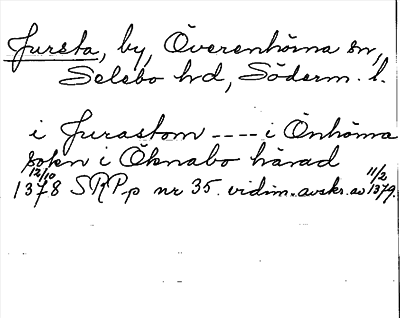 Jursta, by, Överenhörna sn,
Selebo hd, Söderm. l.
i Jurastom ---- i Önhörna
sokn i Öknabo härad
12/10 1378 SRPp nr 35. vidim. avskr. av 11/2 1379.